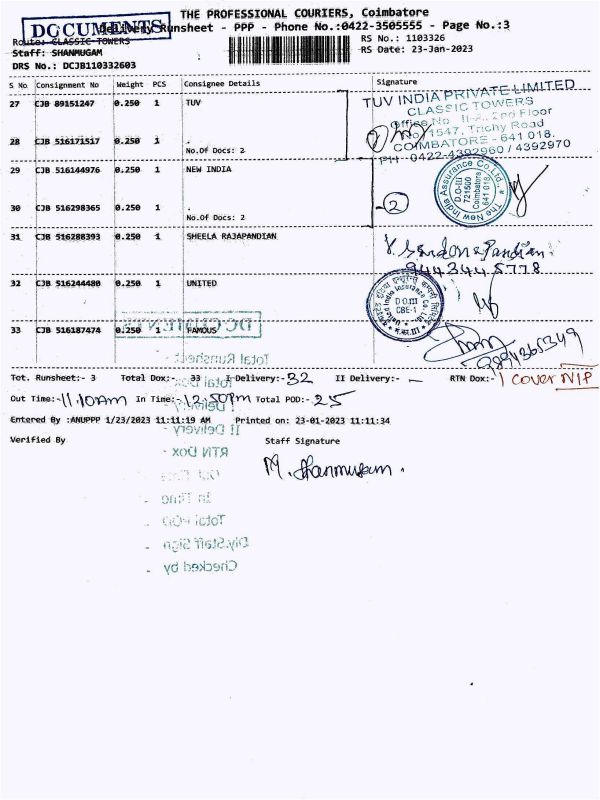 THE PROFESSIONAL COURIERS, Coimbatore
DOCUMENTS
Delivery Runsheet - PPP - Phone No.:0422-3505555 - Page No.:3
Route: CLASSIC TOWERS
RS No.: 1103326
Staff: SHANMUGAM
RS Date: 23-Jan-2023
DRS No.: DCJB110332603
S No. Consignment No Weight PCS Consignee Details Signature
27 CJB 89151247 0.250 1 TUV
TUV INDIA PRIVATE LIMITED
CLASSIC TOWERS
No. 1547, Trichy Road
COIMBATORE - 641 018.
PH : 0422-4392960 / 4392970
28 CJB 516171517 0.250 1 .
No.Of Docs: 2
29 CJB 516144976 0.250 1 NEW INDIA
The New India Assurance Co. Ltd.,
D.O-III
721500
Coimbatore
641 018.
30 CJB 516298365 0.250 1 .
No.Of Docs: 2
2
31 CJB 516288393 0.250 1 SHEELA RAJAPANDIAN
9443445778
32 CJB 516244480 0.250 1 UNITED
D.O.III
CBE-1
33 CJB 516187474 0.250 1 FAMOUS
DOCUMENTS
Total Runsheet:-
Tot. Runsheet:- 3 Total Dox:- 33 I Delivery:- 32 II Delivery:- — RTN Dox:- 1 cover N/P
Out Time:- 11.10Am In Time:- 12.50pm Total POD:- 25
Entered By :ANUPPP 1/23/2023 11:11:19 AM Printed on: 23-01-2023 11:11:34
II Delivery -
Verified By Staff Signature
RTN Dox -
M. Shanmugam.
In Time -
Total POD -
Dly.Staff Sign -
Checked by -